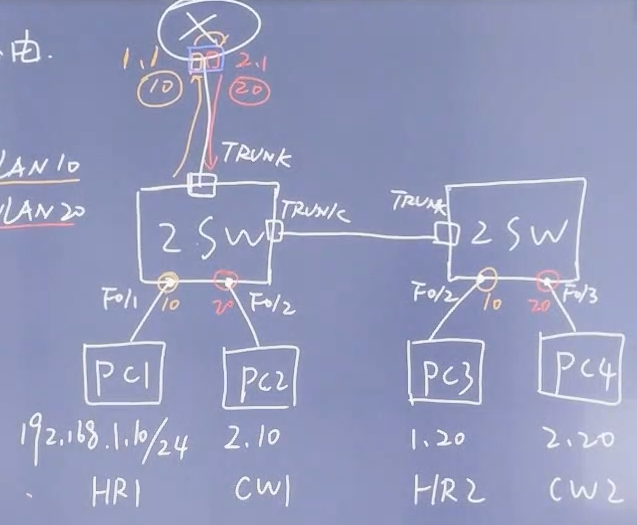 由.
X
1.1 2.1
10 20
TRUNK
LAN10
VLAN20
TRUNK TRUNK
2SW 2SW
F0/1 10 20 F0/2 F0/2 10 20 F0/3
PC1 PC2 PC3 PC4
192.168.1.10/24 2.10 1.20 2.20
HR1 CW1 HR2 CW2